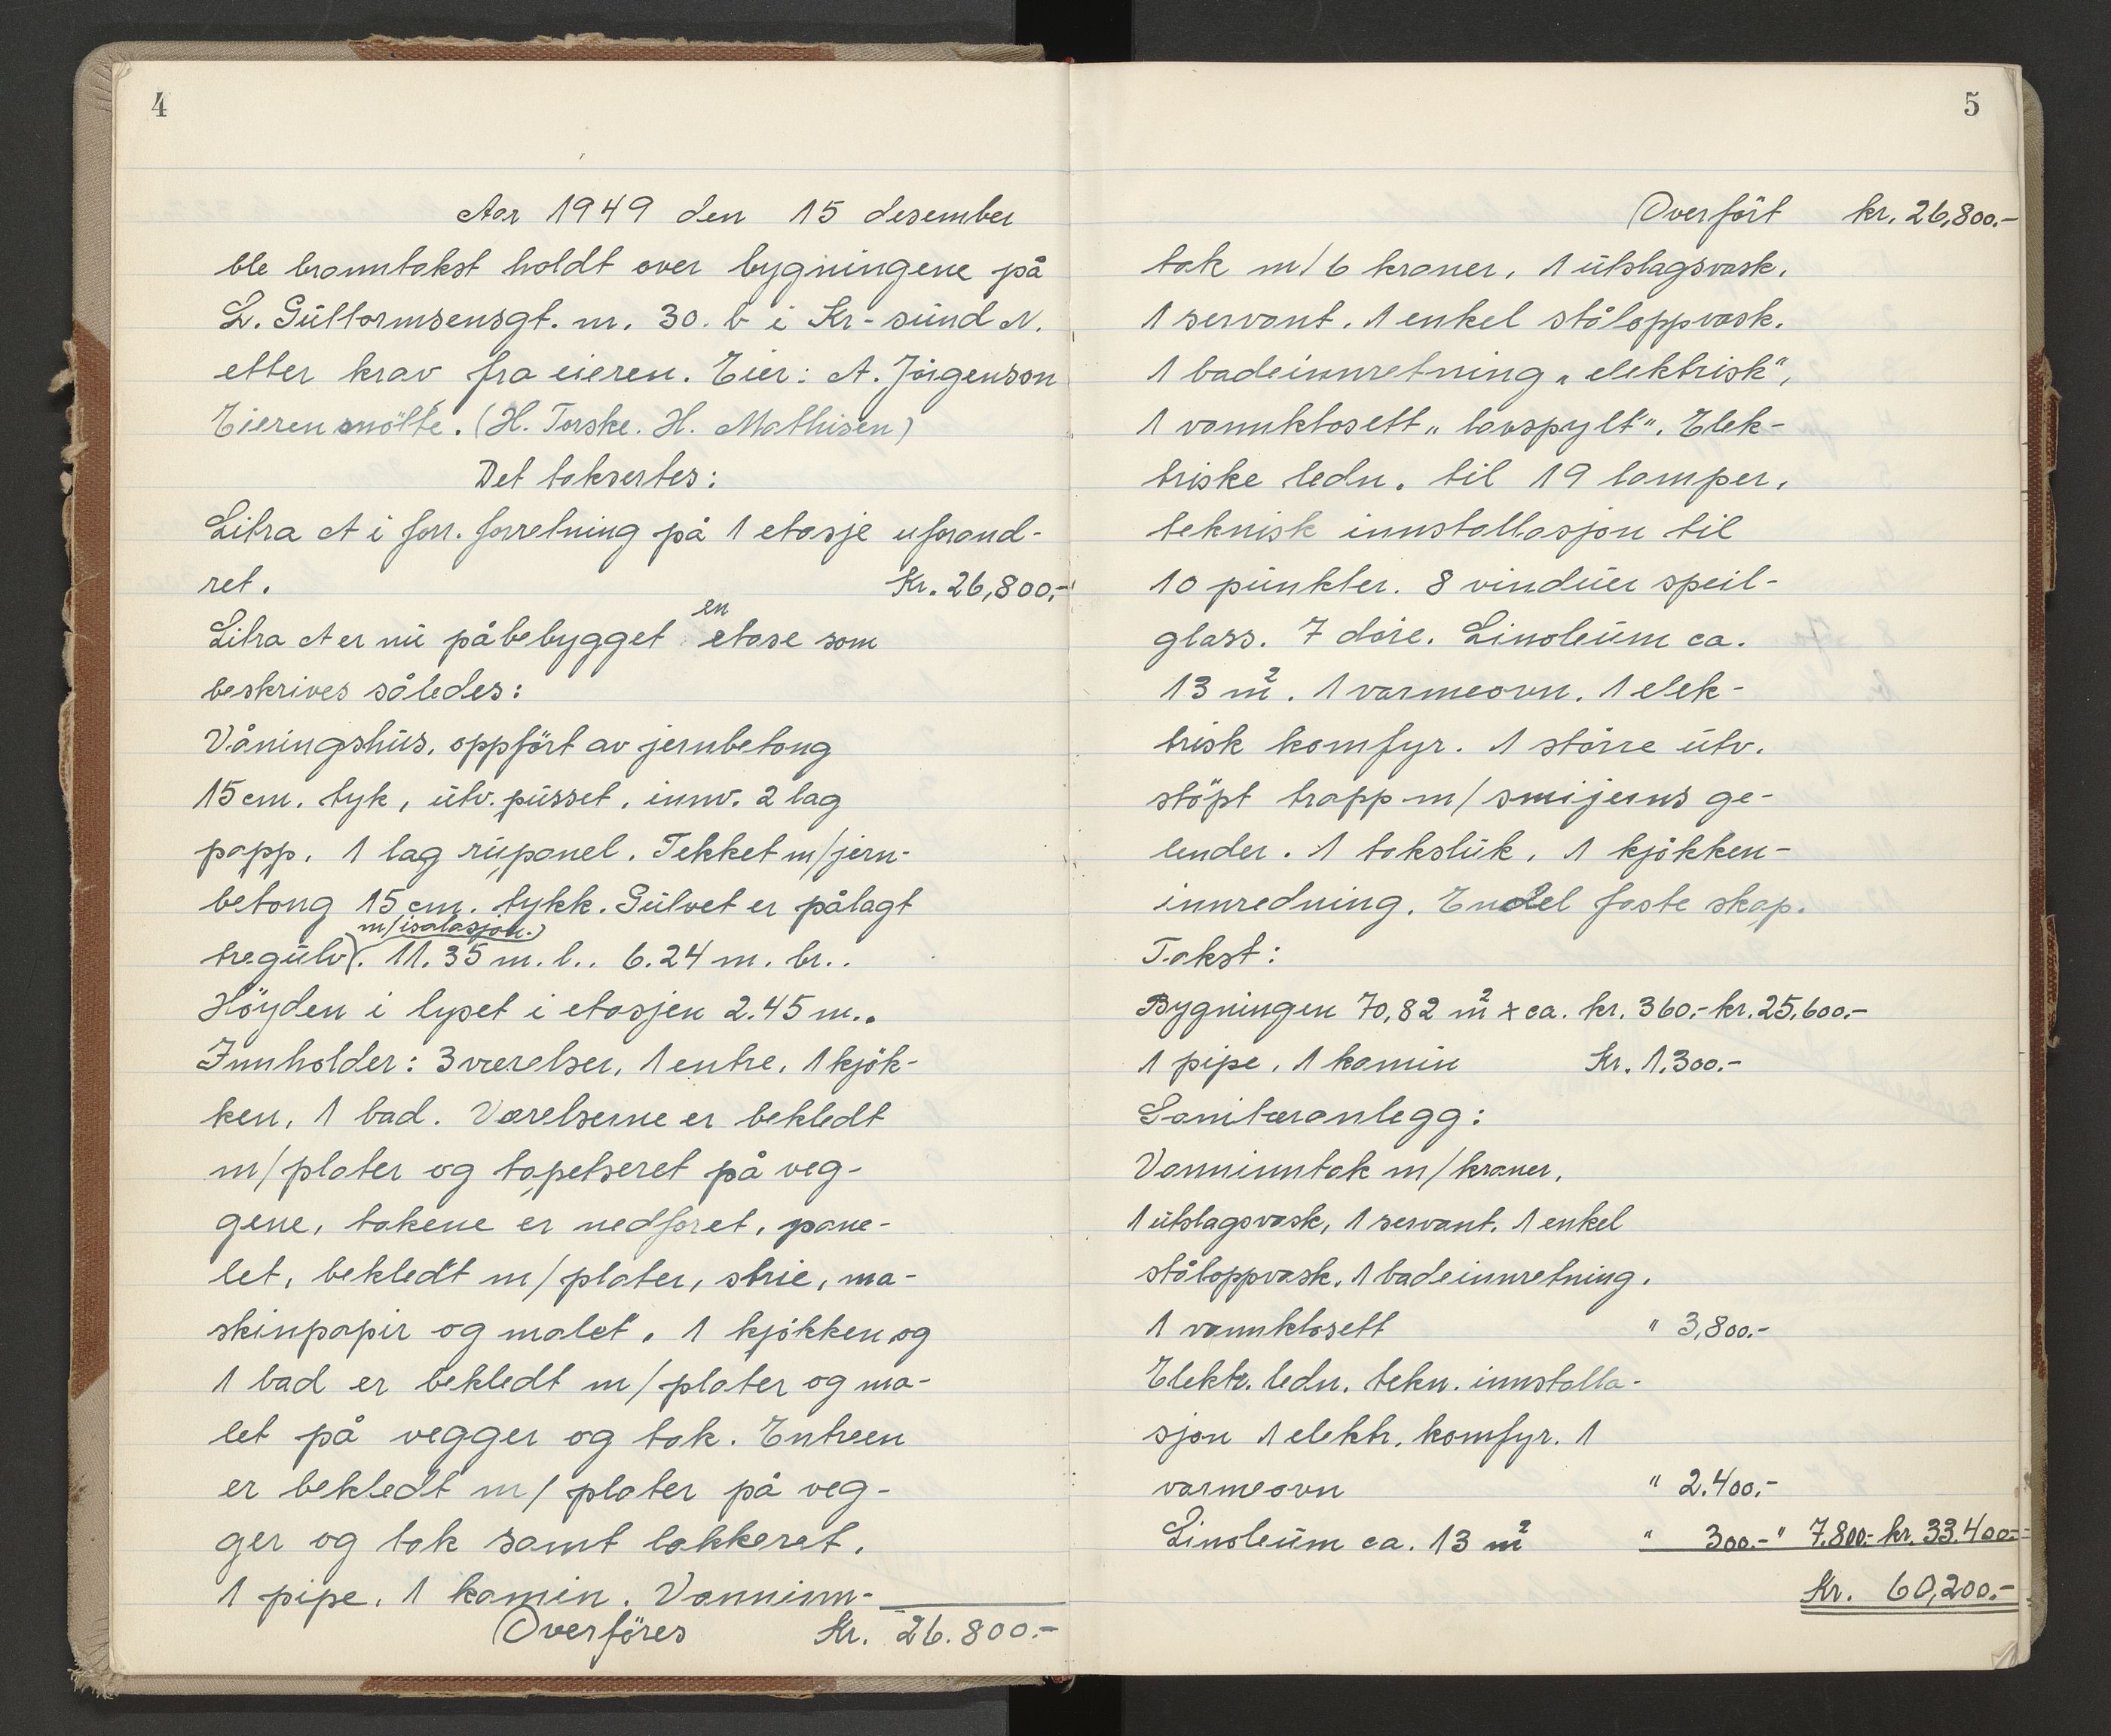 4
Aar 1949 den 15 desember
ble branntakst holdt over bygningene på
L. Guttormsensgt. nr. 30. b i Kr-sund N.
etter krav fra eieren. Eier: A. Jörgenson
Eieren mötte. (H. Torske. H. Mathisen)
Det taksertes:
Litra A i forr. forretning på 1 etasje uforand-
ret. Kr. 26,800,-
en
Litra A er nu påbebygget etase som
beskrives således:
Våningshus, oppfört av jernbetong
15 cm. tyk, utv. pusset, innv. 2 lag
papp. 1 lag rupanel. Tekket m/jern-
betong 15 cm. tykk. Gulvet er pålagt
m/isolasjon.)
tregulv). 11.35 m. l.. 6.24 m. br..
Höyden i lyset i etasjen 2.45 m..
Innholder: 3 værelser, 1 entre, 1 kjök-
ken, 1 bad. Værelserne er bekledt
m/plater og tapetseret på veg-
gene, takene er nedforet, pane-
let, bekledt m/plater, strie, ma-
skinpapir og malet. 1 kjökken og
1 bad er bekledt m/plater og ma-
let på vegger og tak. Entreen
er bekledt m/plater på veg-
ger og tak samt lakkeret.
1 pipe. 1 kamin. Vanninn-
Overföres Kr. 26.800.-
5
Overfört kr. 26,800.-
tak m/6 kraner, 1 utslagsvask.
1 servant. 1 enkel ståloppvask.
1 badeinnretning „elektrisk",
1 vannklosett „lavspylt". Elek-
triske ledn. til 19 lamper.
teknisk innstallasjon til
10 punkter. 8 vinduer speil-
glass. 7 döre. Linoleum ca.
13 m². 1 varmeovn. 1 elek-
trisk komfyr. 1 större utv.
stöpt trapp m/smijerns ge-
lender. 1 taksluk. 1 kjökken-
innredning. Endel faste skap.
Takst:
Bygningen 70,82 m² x ca. kr. 360.- kr. 25.600.-
1 pipe, 1 kamin Kr. 1.300.-
Sanitæranlegg:
Vanninntak m/kraner,
1 utslagsvask, 1 servant. 1 enkel
ståloppvask. 1 badeinnretning.
1 vannklosett " 3,800.-
Elektr. ledn. tekn. innstalla-
sjon 1 elektr. komfyr. 1
varmeovn " 2.400.-
Linoleum ca. 13 m² " 300.- " 7.800.- kr. 33.400.-
Kr. 60,200.-